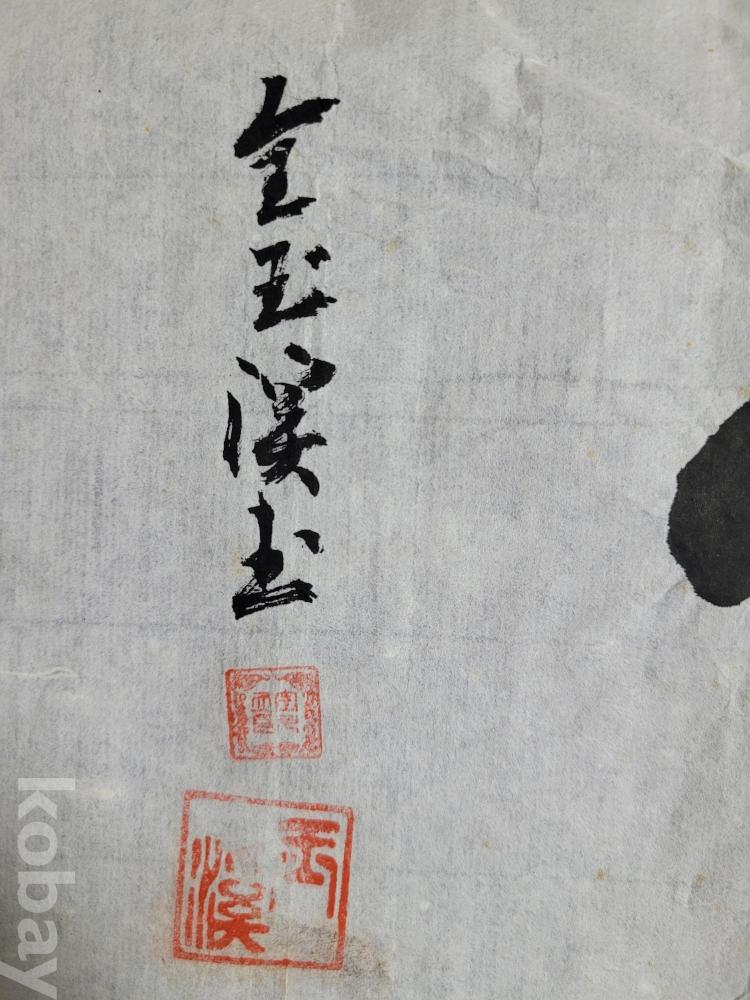 金玉溪书
玉溪
kobay